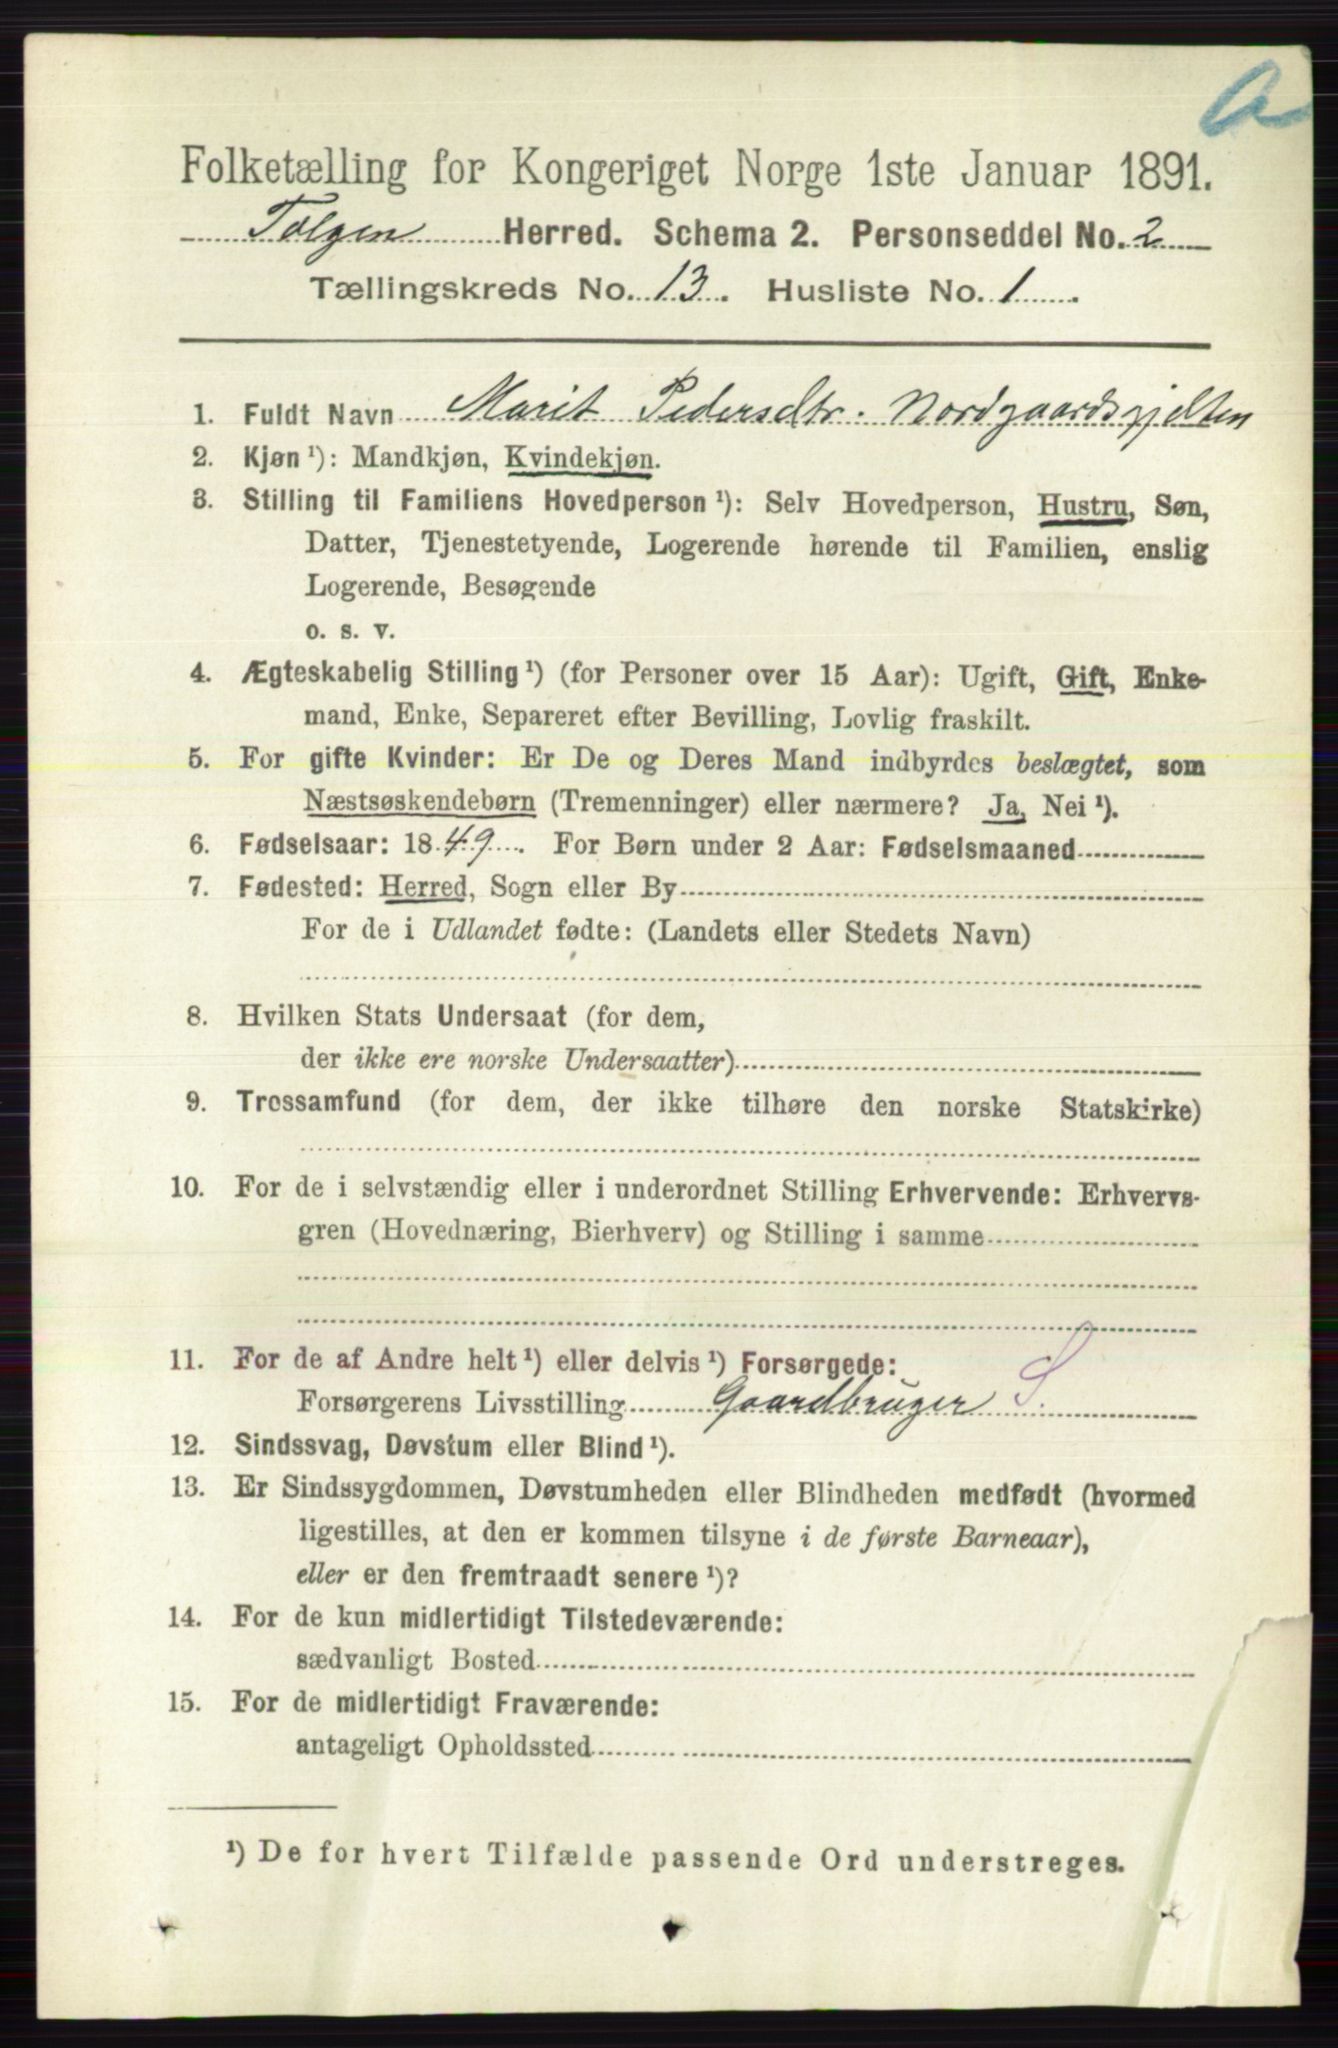 a
Folketælling for Kongeriget Norge 1ste Januar 1891.
Tolgen Herred. Schema 2. Personseddel No. 2
Tællingskreds No. 13. Husliste No. 1.
1. Fuldt Navn Marit Pedersdtr. Nordgaardsgjelten
2. Kjøn ¹): Mandkjøn, Kvindekjøn.
3. Stilling til Familiens Hovedperson ¹): Selv Hovedperson, Hustru, Søn,
Datter, Tjenestetyende, Logerende hørende til Familien, enslig
Logerende, Besøgende
o. s. v.
4. Ægteskabelig Stilling ¹) (for Personer over 15 Aar): Ugift, Gift, Enke-
mand, Enke, Separeret efter Bevilling, Lovlig fraskilt.
5. For gifte Kvinder: Er De og Deres Mand indbyrdes beslægtet, som
Næstsøskendebørn (Tremenninger) eller nærmere? Ja, Nei ¹).
6. Fødselsaar: 1849. For Børn under 2 Aar: Fødselsmaaned
7. Fødested: Herred, Sogn eller By
For de i Udlandet fødte: (Landets eller Stedets Navn)
8. Hvilken Stats Undersaat (for dem,
der ikke ere norske Undersaatter)
9. Trossamfund (for dem, der ikke tilhøre den norske Statskirke)
10. For de i selvstændig eller i underordnet Stilling Erhvervende: Erhvervs-
gren (Hovednæring, Bierhverv) og Stilling i samme
11. For de af Andre helt ¹) eller delvis ¹) Forsørgede:
Forsørgerens Livsstilling Gaardbruger S.
12. Sindssvag, Døvstum eller Blind ¹).
13. Er Sindssygdommen, Døvstumheden eller Blindheden medfødt (hvormed
ligestilles, at den er kommen tilsyne i de første Barneaar),
eller er den fremtraadt senere ¹)?
14. For de kun midlertidigt Tilstedeværende:
sædvanligt Bosted
15. For de midlertidigt Fraværende:
antageligt Opholdssted
¹) De for hvert Tilfælde passende Ord understreges.